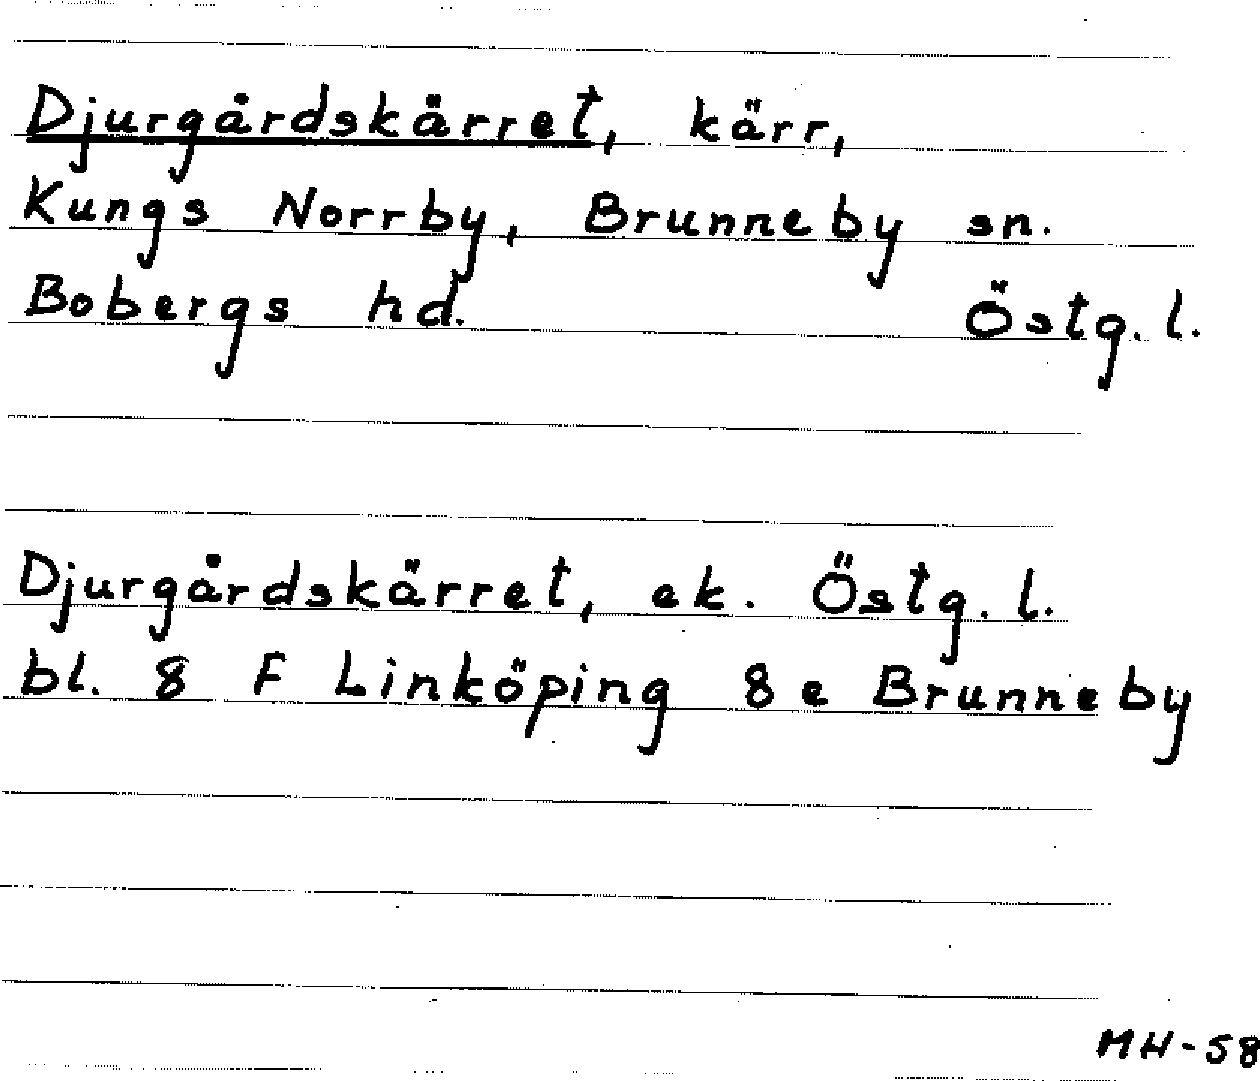 Djurgårdskärret, kärr,
Kungs Norrby, Brunneby sn.
Bobergs hd. Östg. l.
Djurgårdskärret, ek. Östg. l.
bl. 8 F Linköping 8 e Brunneby
MH-58